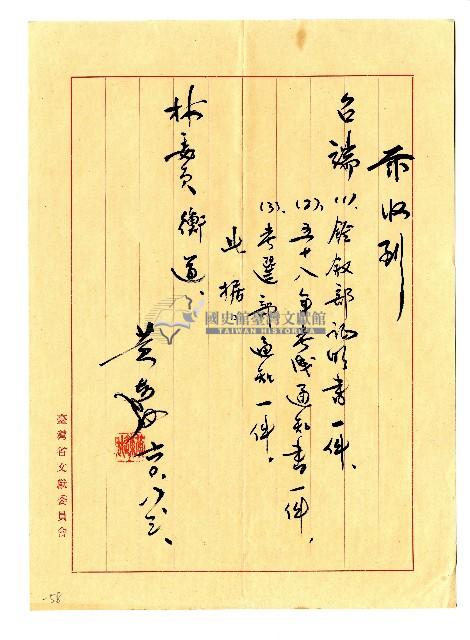 茲收到
台端(1)、銓敘部証明書一件、
(2)、五十八年考成通知書一件,
(3)、考選部通知一件。
此據。
林委員衡道、
六○、八、
臺灣省文獻委員會
國史館臺灣文獻館
TAIWAN HISTORICA
-58